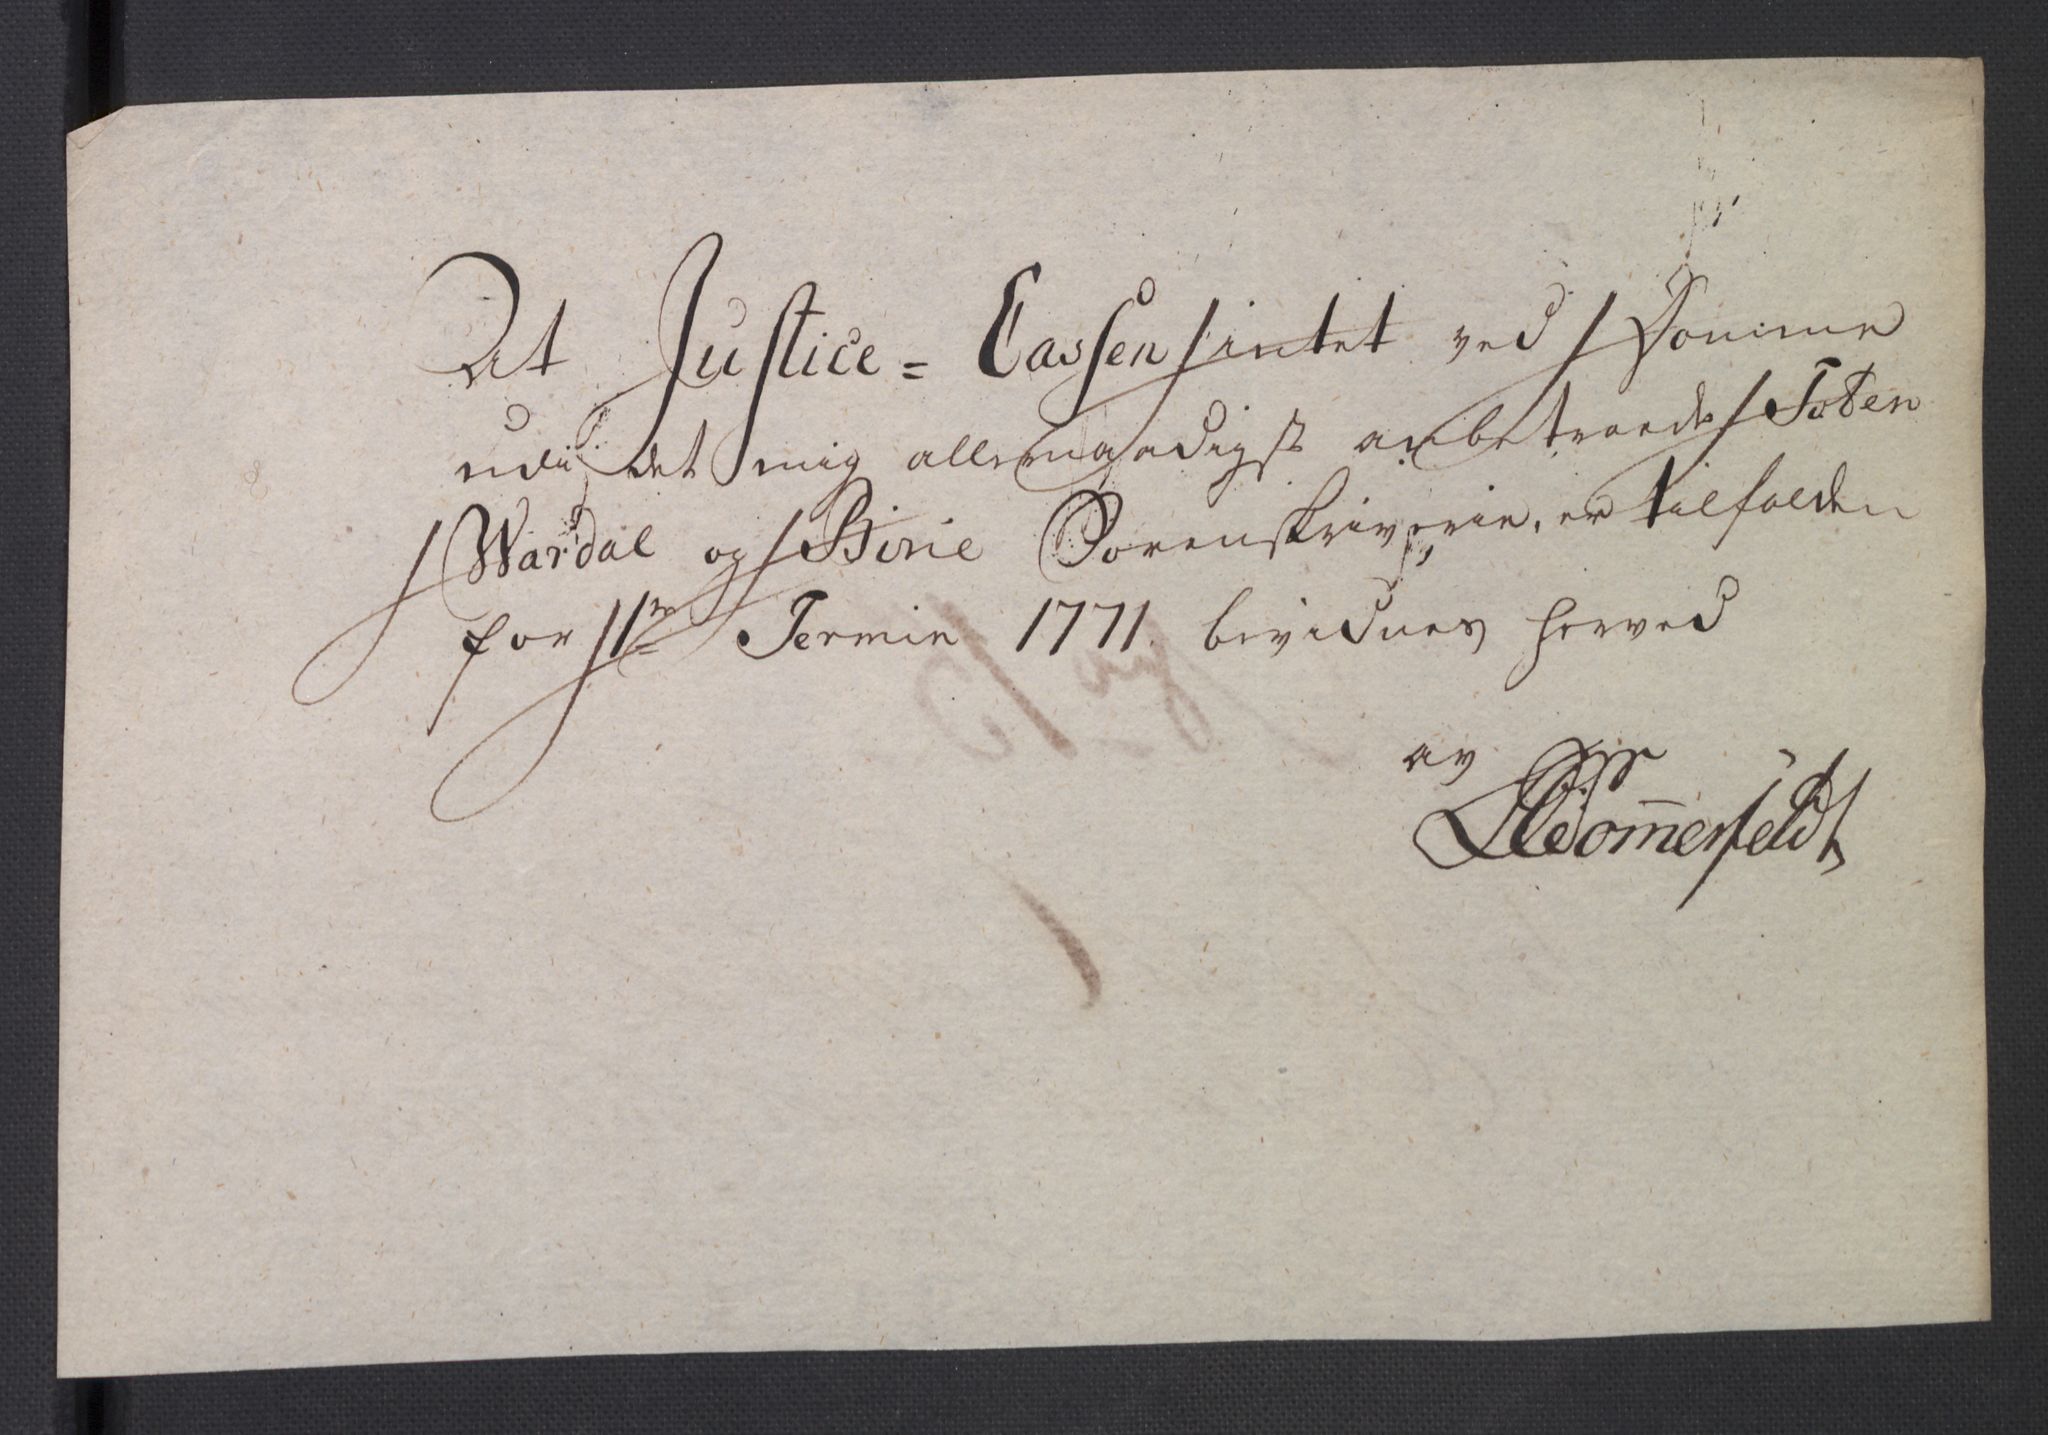 At Justice = Cassen intet ved Domme
udi det mig allernaadigst anbetroede Toten
Wardal og Birie Sorenskriverie, er tilfalden
for 1ste Termin 1771. bevidnes herved
av
Sommerfeldt